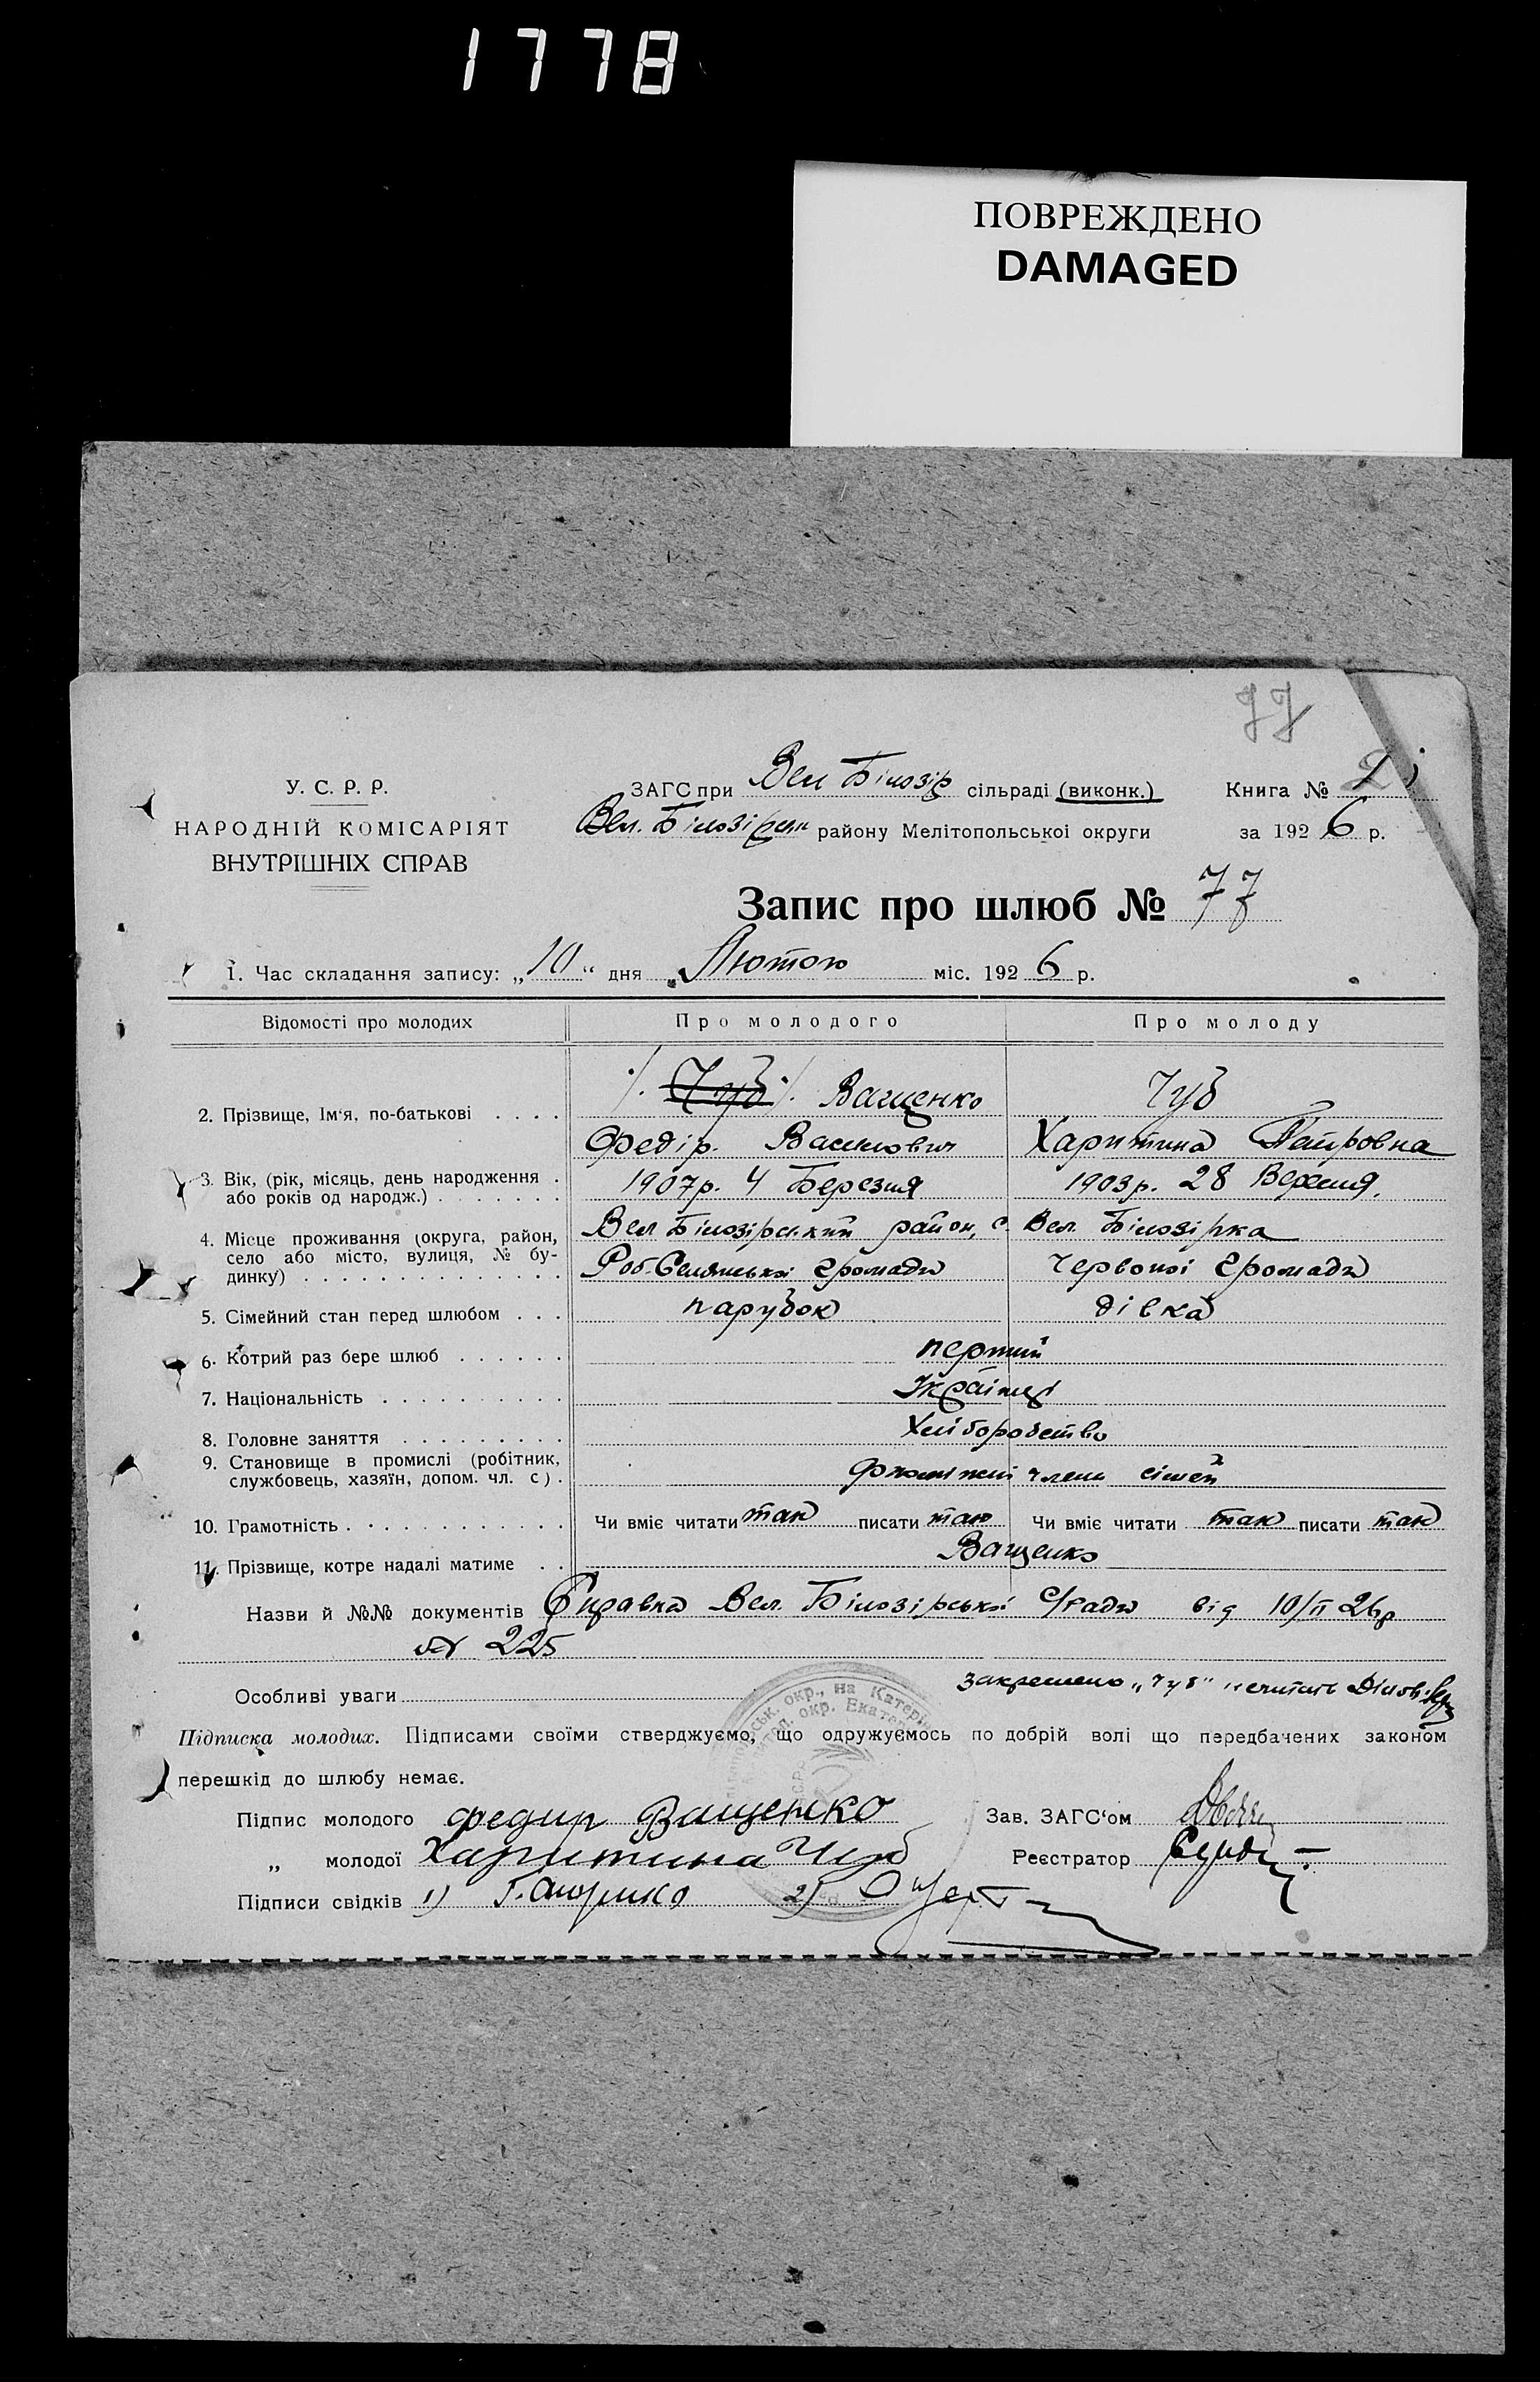 1778
ПОВРЕЖДЕНО
DAMAGED
77
У. С. Р. Р.
НАРОДНІЙ КОМІСАРІЯТ
ВНУТРІШНІХ СПРАВ
ЗАГС при Вел Білозір сільраді (виконк.)
Вел. Білозірськ району Мелітопольської округи
Книга №
за 1926 р.
Запис про шлюб № 77
1. Час складання запису: „10“ дня „Лютого міс. 1926 р.
Відомості про молодих
Про молодого
Про молоду
2. Прізвище, Ім‘я, по-батькові . . . .
Чуб Ващенко
Чуб
Федір. Василович
Харитина Петровна
3. Вік, (рік, місяць, день народження .
або років од народж.) . . . . . . .
1907р. 4 Березня
1903р. 28 Вересня.
4. Місце проживання (округа, район,
село або місто, вулиця, № бу-
динку) . . . . . . . . . . . . . .
Вел Білозірський район, с. Вел. Білозірка
Роб-Селянської громади
Червоної громади
5. Сімейний стан перед шлюбом . . .
парубок
дівка
6. Котрий раз бере шлюб . . . . . .
перший
7. Національність . . . . . . . . . .
Українці
8. Головне заняття . . . . . . . . .
Хліборобство
9. Становище в промислі (робітник,
службовець, хазяїн, допом. чл. с) .
члени сімей
10. Грамотність . . . . . . . . . . . .
Чи вміє читати так писати так
Чи вміє читати так писати так
11. Прізвище, котре надалі матиме . .
Ващенко
Назви й №№ документів Справка Вел. Білозірської С/ради від 10/II 26р
№ 225
Особливі уваги
закреслено „Чуб“ не читать
Підписка молодих. Підписами своїми стверджуємо, що одружуємось по добрій волі що передбачених законом
перешкід до шлюбу немає.
Підпис молодого Федир Ващенко
Зав. ЗАГС‘ом
„ молодої Харитина Чуб
Реєстратор
Підписи свідків 1) 2)